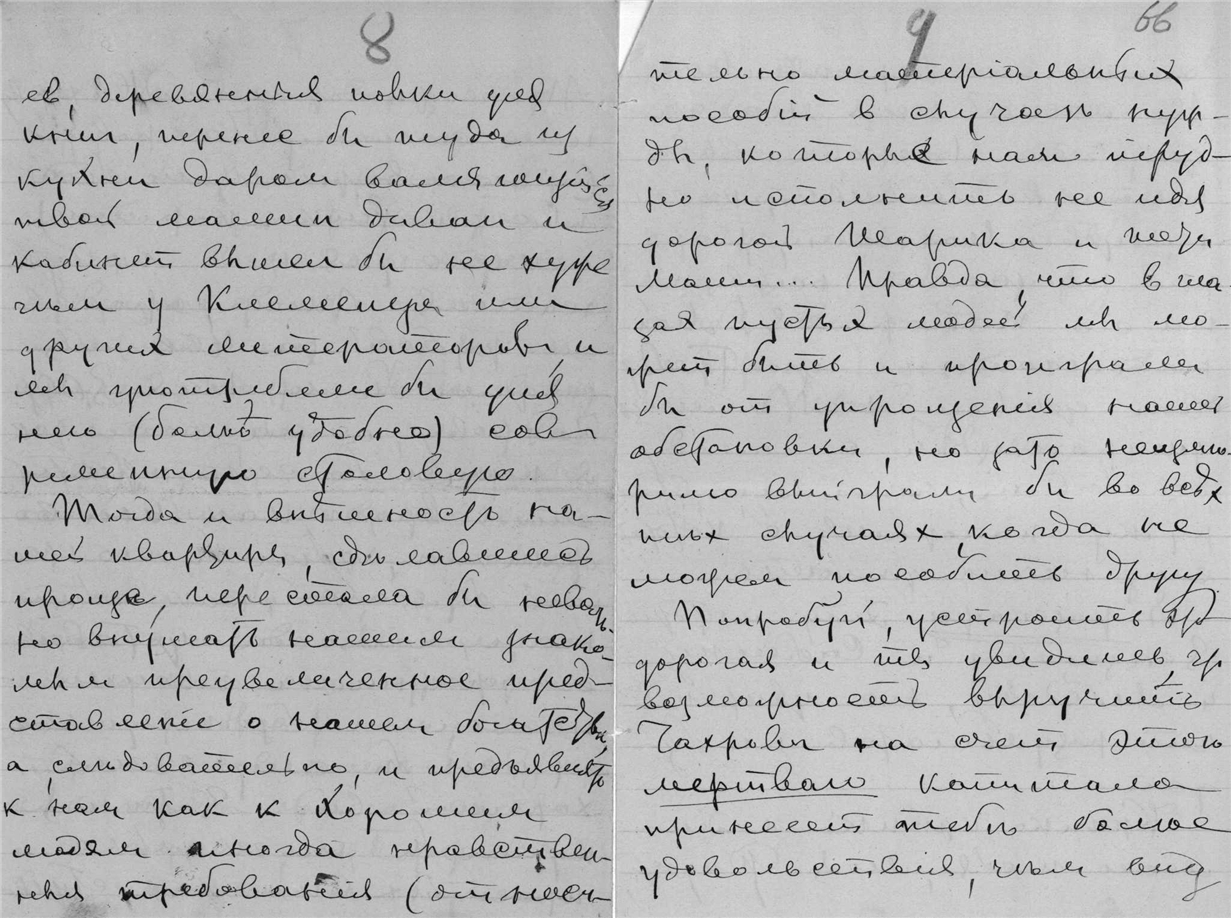 8
ев, деревянныя полки для
книг, перенес бы туда из
кухни даром валяющийся
твой мамин диван и
кабинет вышел бы не хуже
чем у Клеменца или
других литераторовъ, и
мы употребляли бы для
него (более удобно) совр
ременную столовую.
Тогда и внешность на-
шей квартиры, сделавшись
проще, перестала бы неволь-
но внушать нашим знако-
мым преувеличенное пред-
ставление о нашем богатстве,
а, следовательно, и предъявлять
к нам как к хорошим
людям иногда нравствен-
ныя требования (относи-
9
66
тельно матеріальных
пособій в случаях нуж-
ды, которые нам труд-
но исполнить не идя
дорогой Шарика и
мамы... Правда, что в гла-
зах пустых людей мы мо-
жет быть и проиграли
бы от упрощенія нашей
обстановки, но зато неизме-
римо выиграли бы во всех
иных случаях, когда не
можем пособить другу.
Попробуй, устроить это
дорогая и ты увидишь, что
возможность выручить
на счет этого
мертваго капитала
принесет тебе более
удовольствия, чем вид